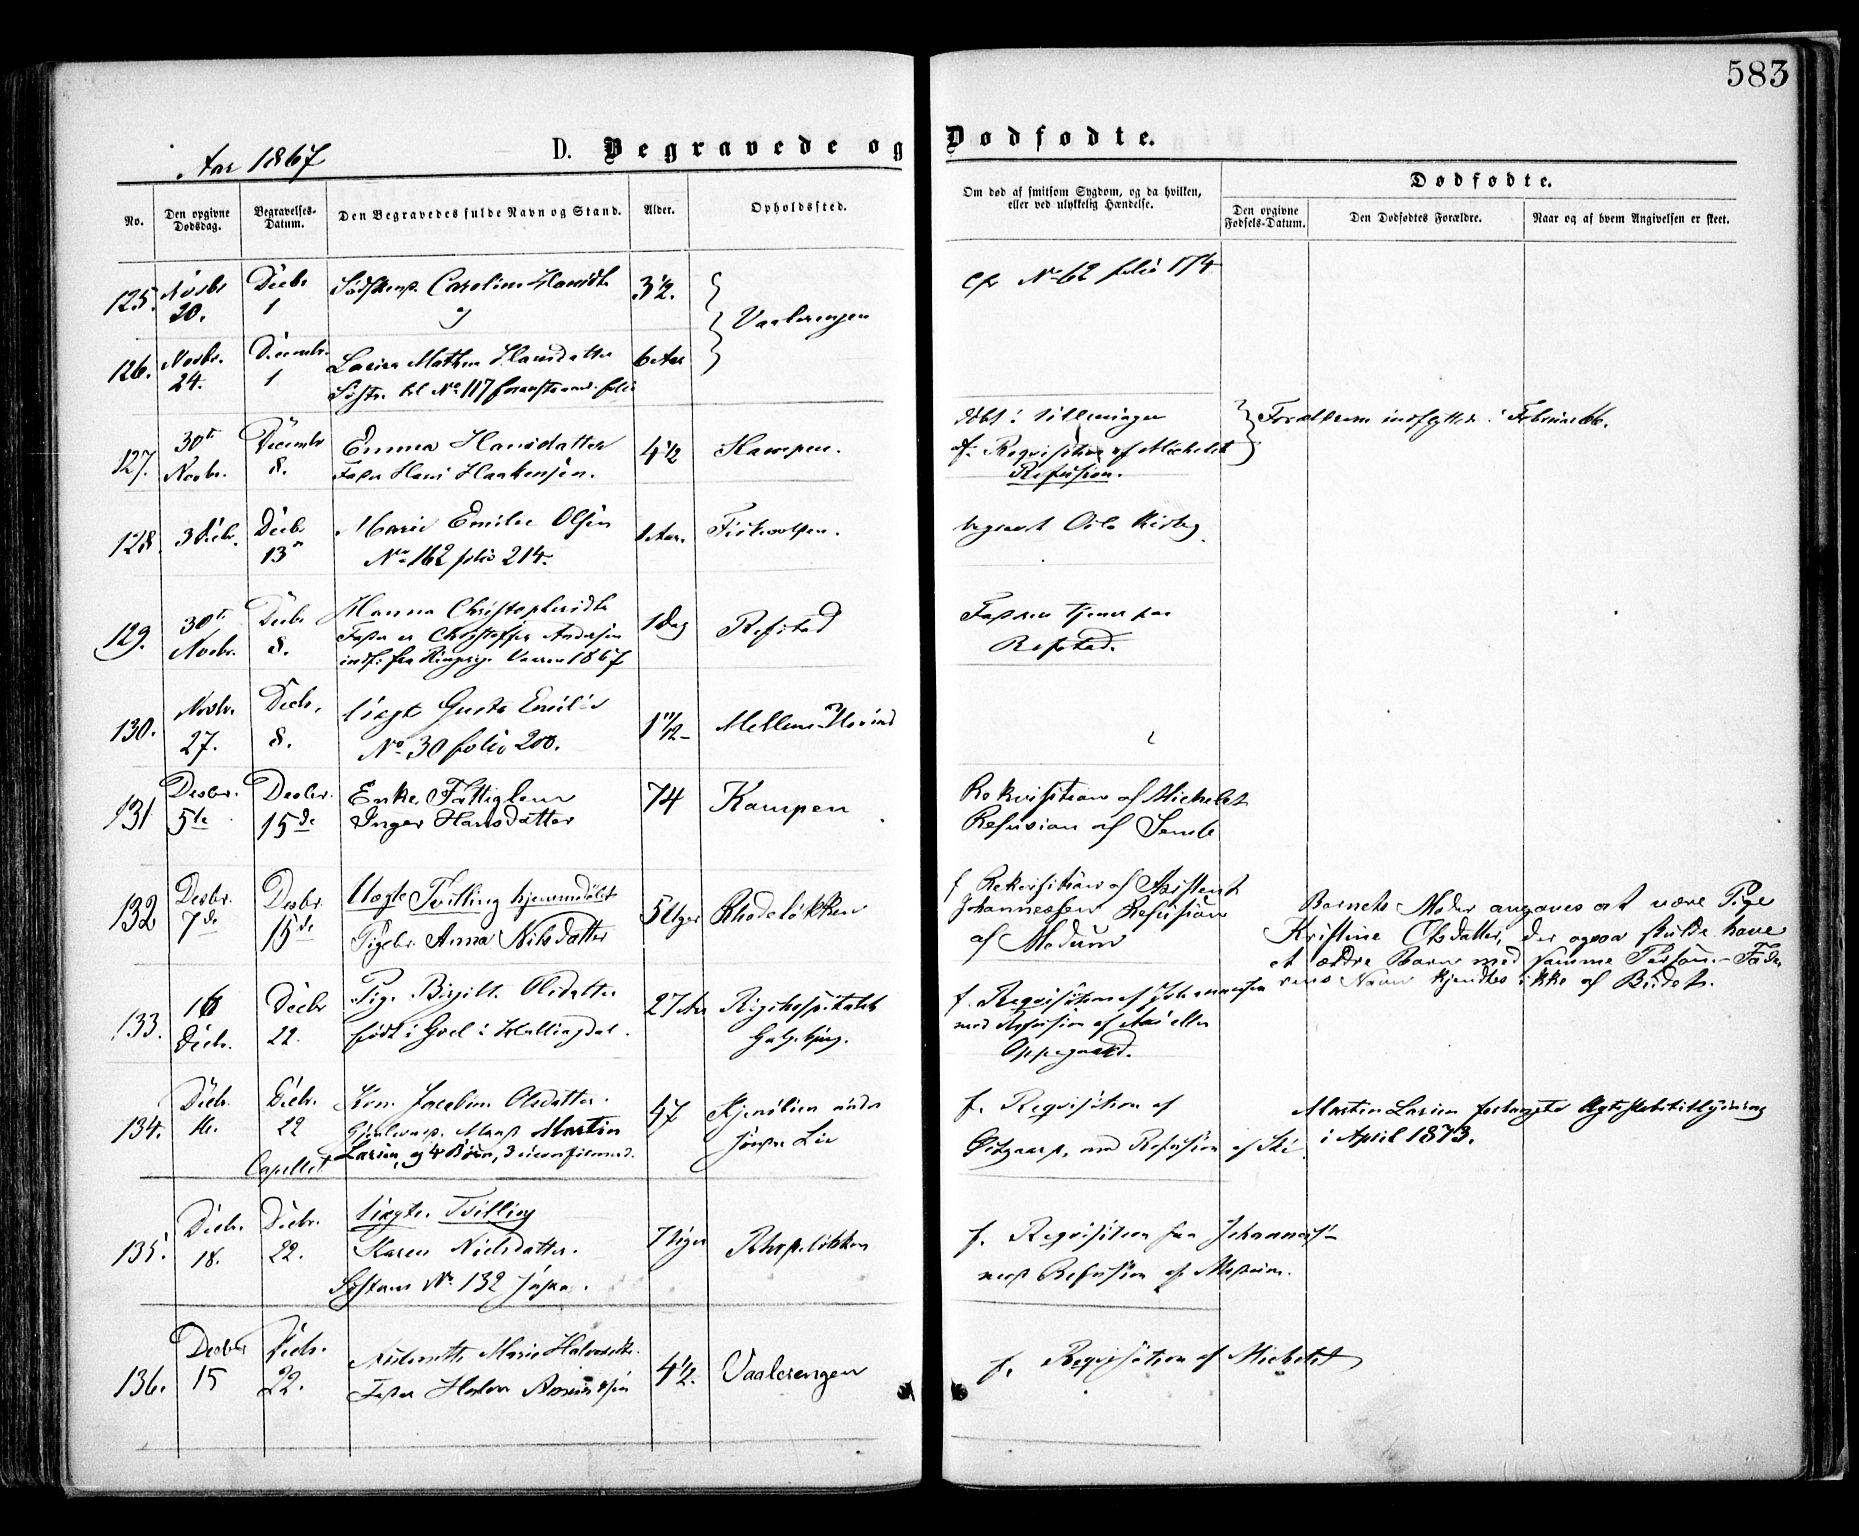 583
Aar 1867
D. Begravede og Dødfødte.
No.
Den opgivne Dødsdag.
Begravelses-Datum.
Den Begravedes fulde Navn og Stand.
Alder.
Opholdssted.
Om død af smitsom Sygdom, og da hvilken,
eller ved ulykkelig Hændelse.
Dødfødte.
Den opgivne Fødsels-Datum.
Den Dødfødtes Forældre.
Naar og af hvem Angivelsen er skeet.
125. Novbr 20. Decbr 1 Caroline Hansdtr 3½.
og
Vaalerengen
cfr No 62 folio 174
126. Novbr. 24. Decembr. 1 Hansdatter 6 Aar
Søster til No 117 foranstaaende folio
127. 30te Novbr. Decembr 8. Emma Hansdatter 4½ Kampen.
Fader Hans Haakensen.
døbt i Lillehammer
f. Requisition af Michelet
Refusion.
Forældrene indflyttede i Februar 66.
128. 3 Decbr. Decbr 13de Marie Emilie Olsen 1 Aar.
No 162 folio 214.
begravet Oslo Kirkeg
129. 30te Novbr. Decbr 8. Hanna Christophersdtr 1 Dag Refstad
Fader er Christoffer Andersen
indfl. fra Ringerige Vaaren 1867
Faderen tjener paa
Refstad.
130. Novbr. 27. Decbr. 8. Uægte Gusta Emilie
No 30 folio 200.
Mellem Hovind
131 Decbr. 5te Decbr. 15de Enke, Fattiglem 74 Kampen
Inger Hansdatter
Rekvisition af Michelet
Refusion af Sende
132 Decbr. 7de Decbr. 15de Uægte Tvilling hjemmedøbt 5 Uger Rhodeløkken
Pigebr. Anna Nilsdatter
f Rekvisition af Assistent
Johannessen Refusion
af Modum
Barnets Moder angaves at være Pige
Kristine Olsdatter, der ogsaa skulde have
et ældre Barn med samme Person. Fade-
rens Navn kjendtes ikke af Budet.
133. 16 Decbr. Decbr 22. Pige Birgitte Olsdatter 27 Aar Rigshospitalet
født i Goel i Hallingdal.
Galgebjerg.
f. Requisition af Johannessen
med Refusion af Aas eller
Oppegaard.
134. Decbr. Decbr. 22 Kone Jacobine Olsdatter. 47
Mand Martin
Larsen, og 4 Børn, 3 uconfirmered.
Capellet
f. Requisition af
med Refusion af Ski
Martin Larsen forlangte Ægteskabstillysning
i April 1873.
135. Decbr. 18. Decbr. 22. Uægte Tvilling 7 Uger Rhodeløkken
Karen Nielsdatter.
Søsteren No 132
f. Requisition fra Johannes-
med Refusion af Modum.
136. Decbr 15 Decbr. 22. Marie Halvorsdtr. 4½. Vaalerengen
Fader Halvor
f. Requisition af Michelet